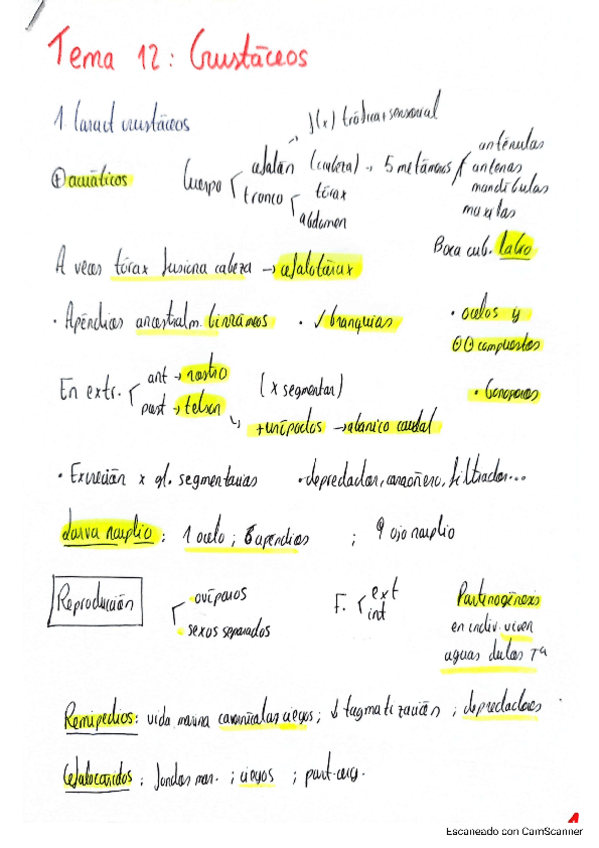 Tema 12: Crustáceos
1. Caract crustáceos
f(x) trófica + sensorial
⊕ acuáticos
Cuerpo
cefalón (cabeza) → 5 metámeros
anténulas
antenas
mandíbulas
maxilas
tronco
tórax
abdomen
Boca cub. labro
A veces tórax fusiona cabeza → cefalotórax
· Apéndices ancestralm. birrámeos
· ✓ branquias
· ocelos y
OO compuestos
En extr.
ant → rostro
post → telson
(x segmentar)
+ urópodos → abanico caudal
· Gonoporos
· Excreción x gl. segmentarias
· depredador, carroñero, filtrador...
Larva nauplio: 1 ocelo; 6 apéndices; ojo nauplio
Reproducción
· ovíparos
· sexos separados
F.
ext
int
Partinogénesis
en indiv. viven
aguas dulces Tª
Remipedios: vida marina cavernícolas ciegos; ↓ tagmatización; depredadores
Cefalocáridos: fondos mar.; ciegos; part. org.
1
Escaneado con CamScanner